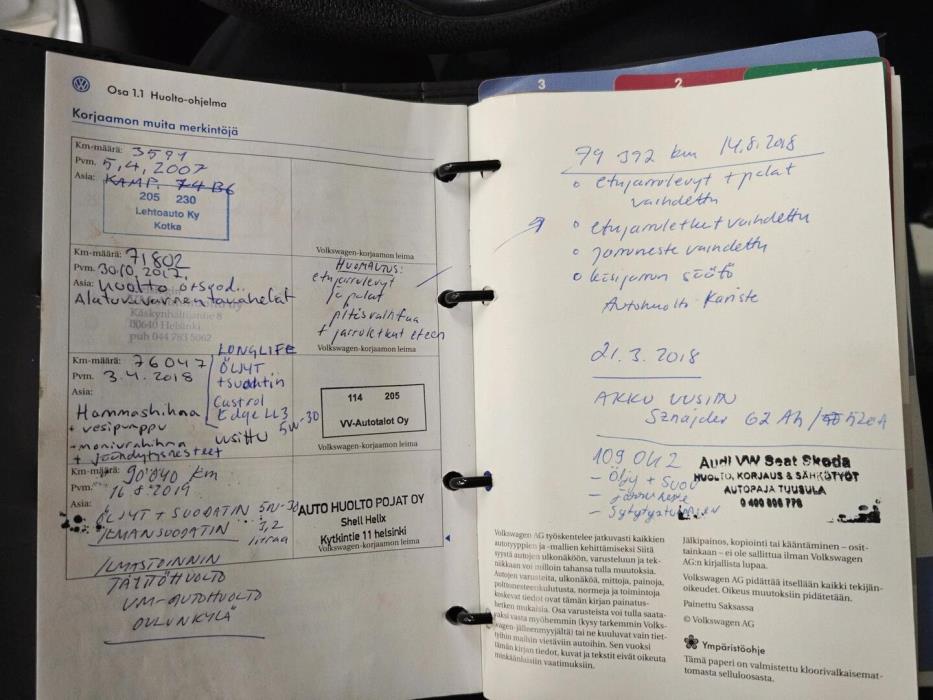 Osa 1.1 Huolto-ohjelma
Korjaamon muita merkintöjä
Km-määrä: 3591
Pvm. 5,4,2007
Asia: KAMP. 74 B6
205 230
Lehtoauto Ky
Kotka
Volkswagen-korjaamon leima
Km-määrä: 71802
Pvm. 30.10.2017.
Asia: Huolto
Käskynhaltijantie 8
00640 Helsinki
puh 044 783 5062
HUOMAUTUS:
etujarrulevyt
ja palat
pitäsvaihtaa
+ jarruletkut eteen
Volkswagen-korjaamon leima
Km-määrä: 76047
Pvm. 3.4.2018
Asia:
Hammashihna
+ vesipumppu
+ moniurahihna
+ jäähdytysnesteet
LONGLIFE
ÖLJYT
+suodatin
Castrol
Edge LL3
5W-30
114 205
VV-Autotalot Oy
Volkswagen-korjaamon leima
Km-määrä: 90040 km
Pvm. 16.8.2019
Asia:
ÖLJYT + SUODATIN 5W-30
ILMANSUODATIN 3,2
litraa
AUTO HUOLTO POJAT OY
Shell Helix
Kytkintie 11 helsinki
Volkswagen-korjaamon leima
ILMASTOINNIN
TÄYTTÖHUOLTO
VM-AUTOHUOLTO
OULUNKYLÄ
3
2
79 392 km 14.8.2018
o etujarrulevyt + palat
vaihdettu
o etujarruletkut vaihdettu
o jarruneste vaihdettu
o käsijarrun säätö
Autohuolto Kariste
21.3.2018
AKKU UUSITTU
Sznajder 62 Ah / 520A
109 042
- Öljy + suod
- jarruneste
Audi VW Seat Skoda
HUOLTO, KORJAUS & SÄHKÖTYÖT
AUTOPAJA TUUSULA
Volkswagen AG työskentelee jatkuvasti kaikkien
autotyyppien ja -mallien kehittämiseksi Siitä
syystä autojen ulkonäköön, varusteluun ja tek-
niikkaan voi milloin tahansa tulla muutoksia.
Autojen varusteita, ulkonäköä, mittoja, painoja,
polttonesteenkulutusta, normeja ja toimintoja
koskevat tiedot ovat tämän kirjan painatus-
hetken mukaisia. Osa varusteista voi tulla saata-
vaksi vasta myöhemmin (kysy tarkemmin Volks-
wagen-jälleenmyyjältä) tai ne kuuluvat vain tiet-
tyihin maihin vietäviin autoihin. Sen vuoksi
tämän kirjan tiedot, kuvat ja tekstit eivät oikeuta
minkäänlaisiin vaatimuksiin.
Jälkipainos, kopiointi tai kääntäminen – osit-
tainkaan – ei ole sallittua ilman Volkswagen
AG:n kirjallista lupaa.
Volkswagen AG pidättää itsellään kaikki tekijän-
oikeudet. Oikeus muutoksiin pidätetään.
Painettu Saksassa
© Volkswagen AG
Ympäristöohje
Tämä paperi on valmistettu kloorivalkaisemat-
tomasta selluloosasta.